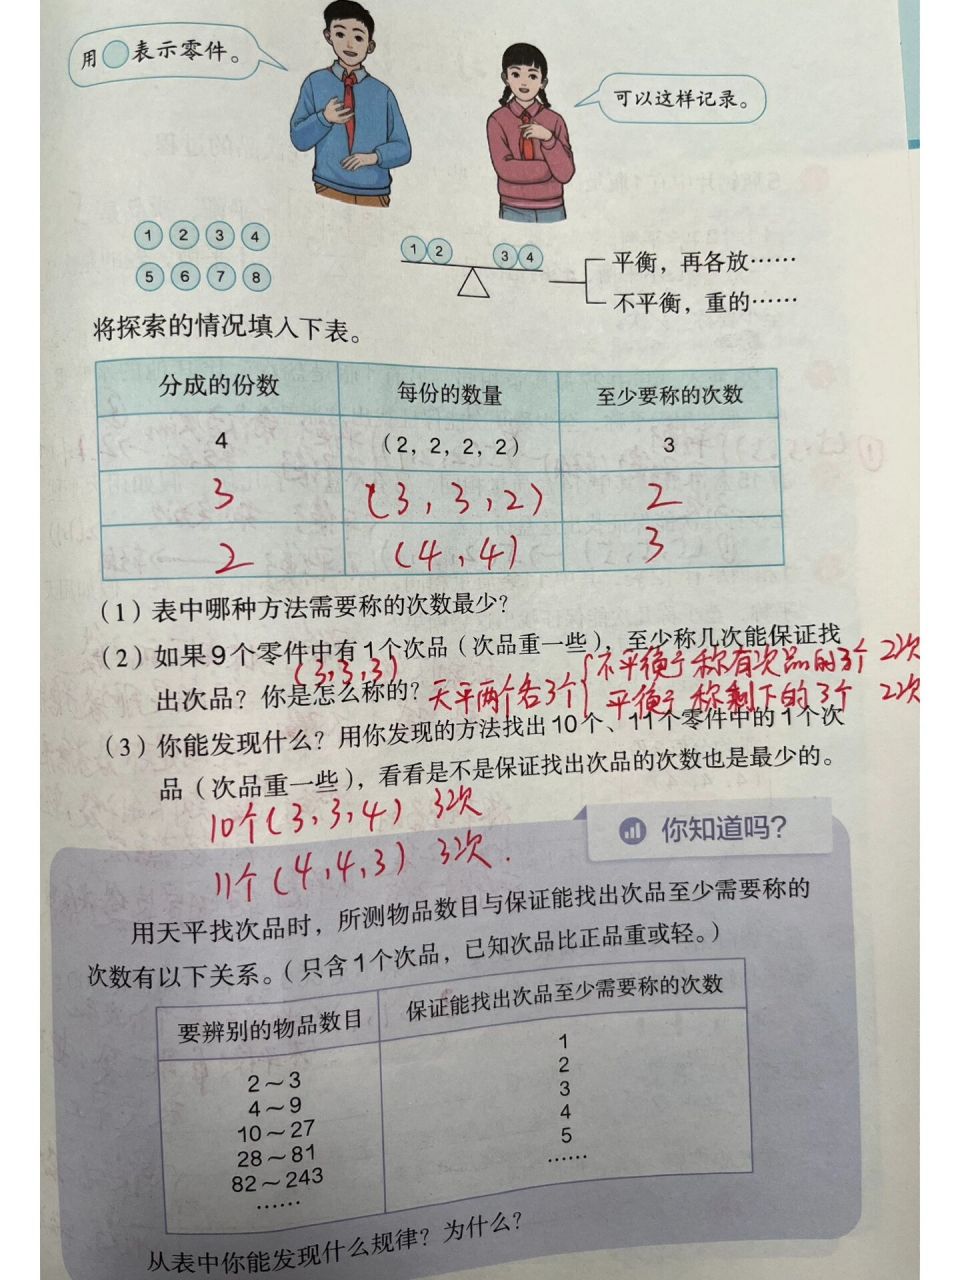 用○表示零件。
可以这样记录。
1 2 3 4
5 6 7 8
1 2 3 4
平衡，再各放……
不平衡，重的……
将探索的情况填入下表。
分成的份数 每份的数量 至少要称的次数
4 （2，2，2，2） 3
3 (3，3，2) 2
2 (4，4) 3
（1）表中哪种方法需要称的次数最少？
（2）如果9个零件中有1个次品（次品重一些），至少称几次能保证找
(3,3,3) 不平衡 称有次品的3个 2次
出次品？你是怎么称的？天平两个各3个
平衡 称剩下的3个 2次
（3）你能发现什么？用你发现的方法找出10个、11个零件中的1个次
品（次品重一些），看看是不是保证找出次品的次数也是最少的。
10个(3,3,4) 3次
11个(4,4,3) 3次.
你知道吗？
用天平找次品时，所测物品数目与保证能找出次品至少需要称的
次数有以下关系。（只含1个次品，已知次品比正品重或轻。）
要辨别的物品数目 保证能找出次品至少需要称的次数
2～3 1
4～9 2
10～27 3
28～81 4
82～243 5
…… ……
从表中你能发现什么规律？为什么？